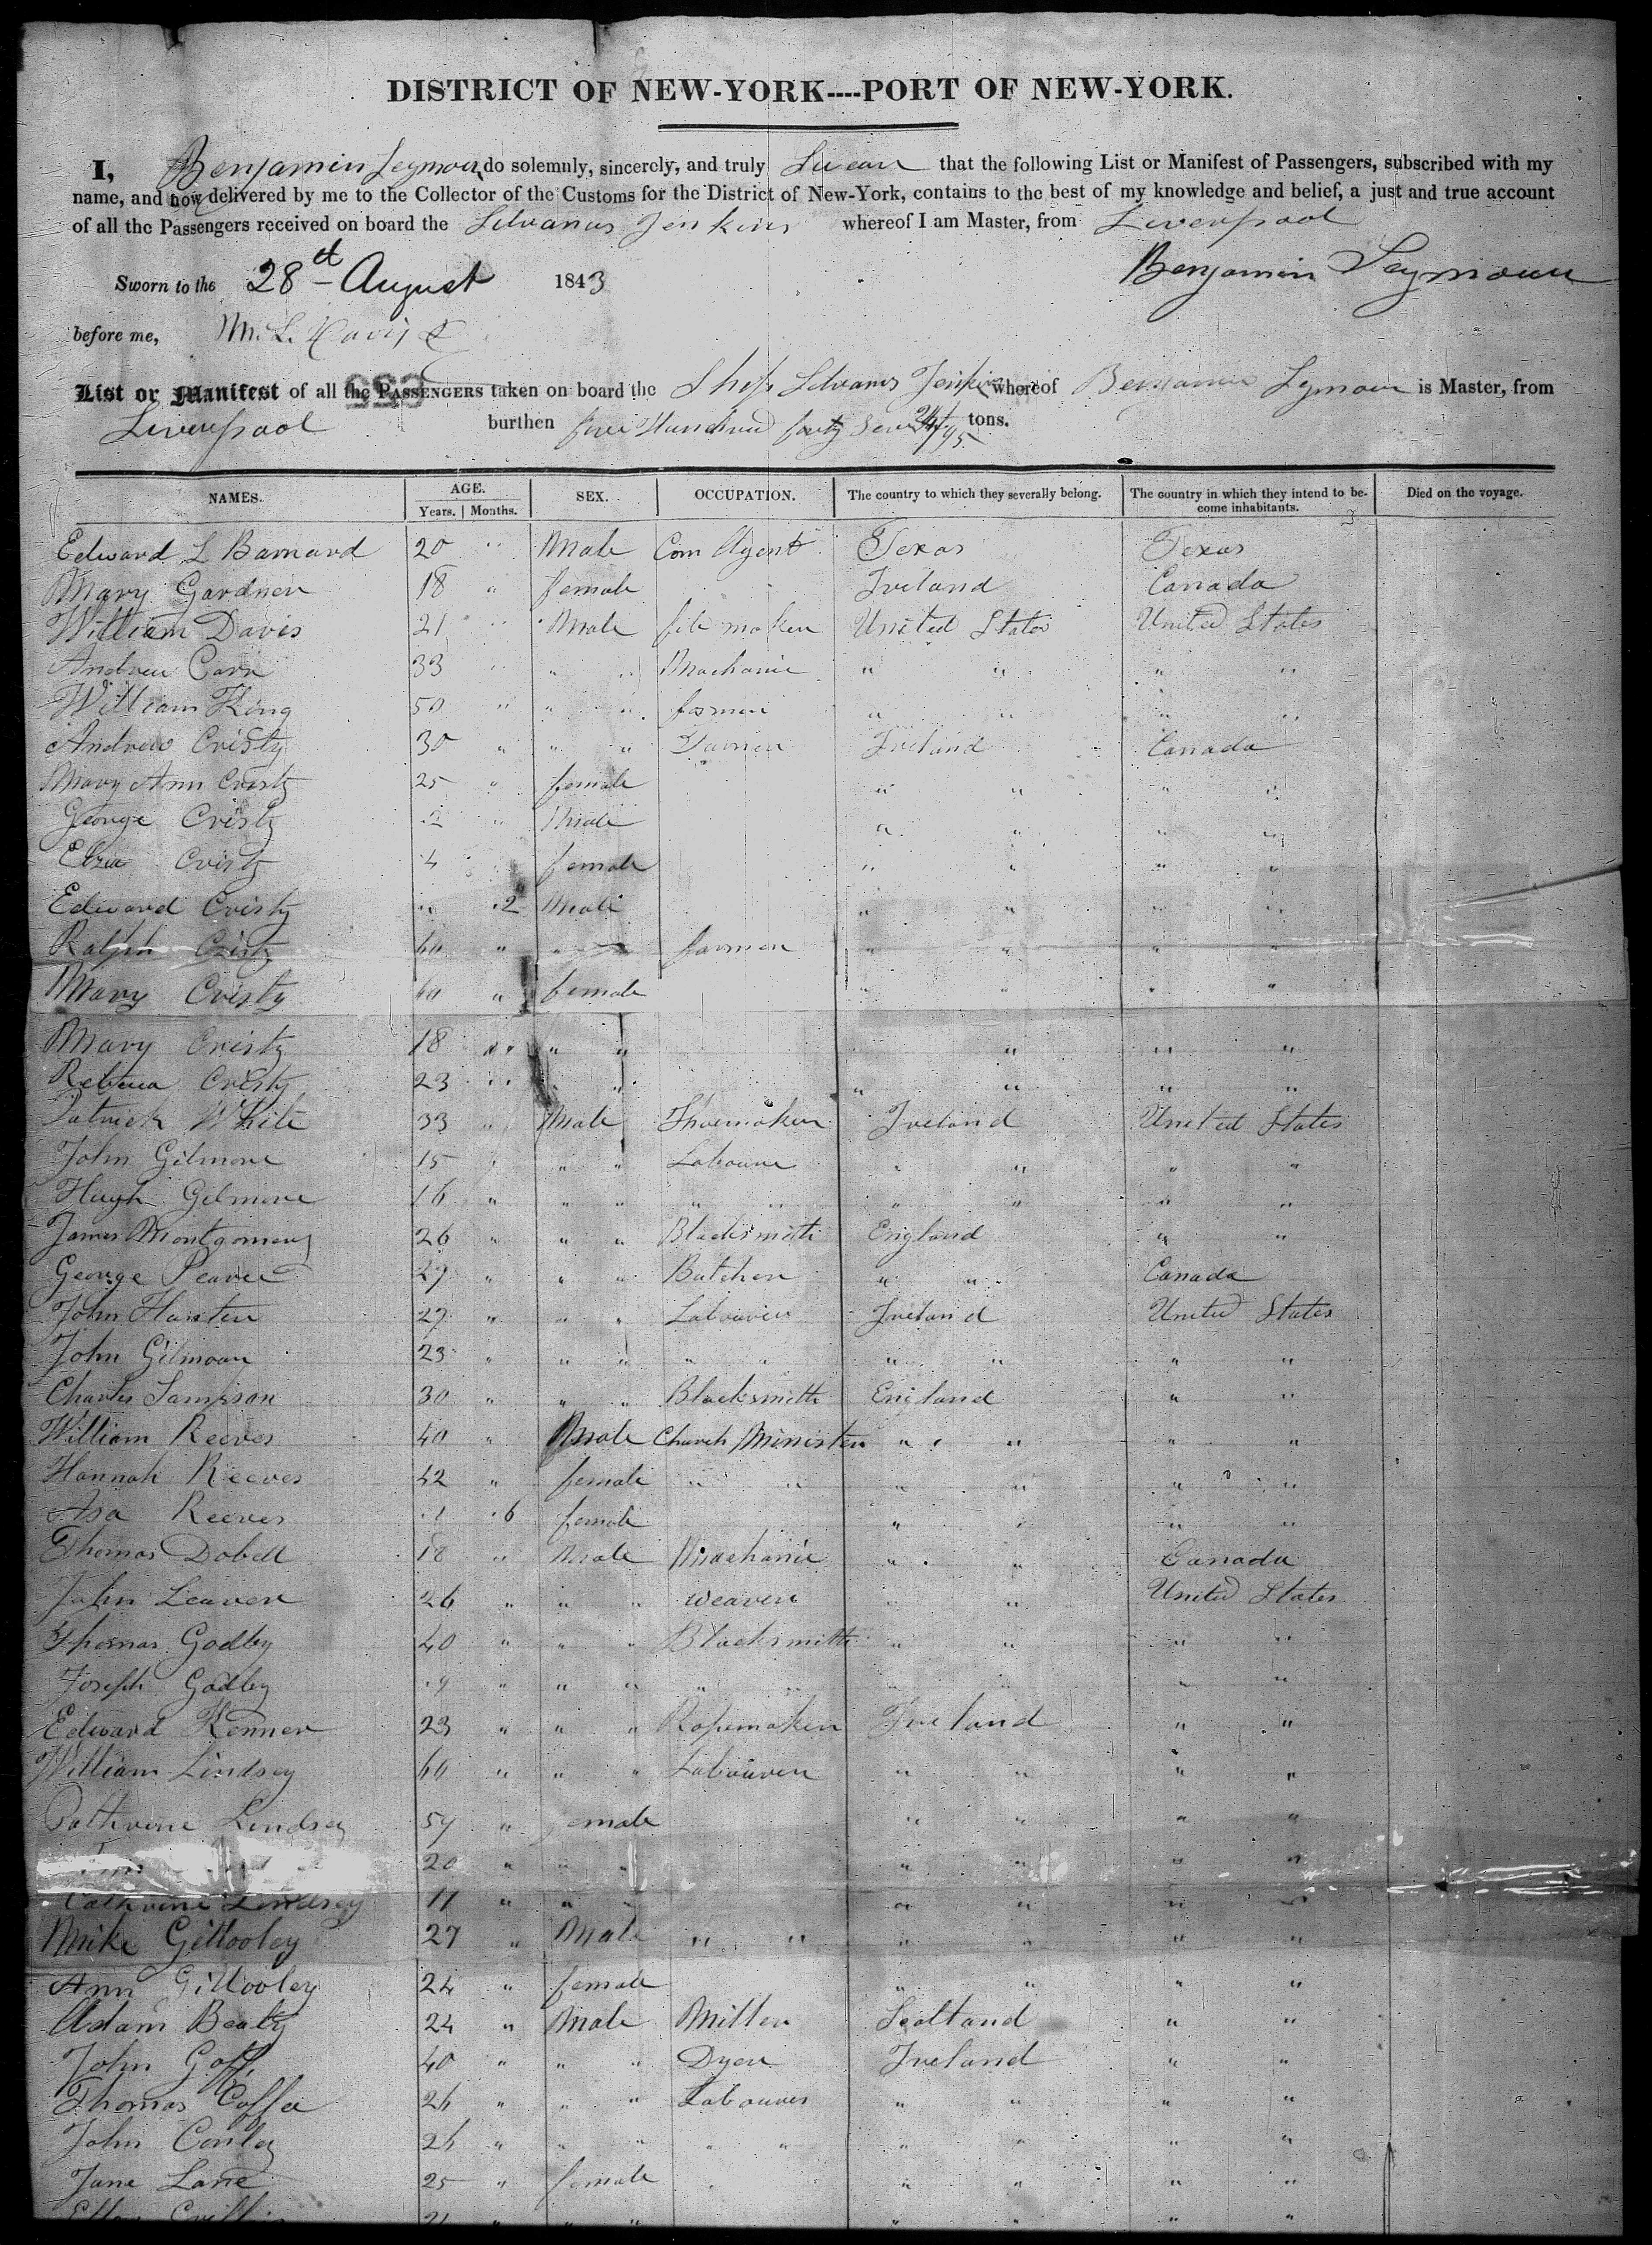 DISTRICT OF NEW-YORK----PORT OF NEW-YORK.
I, Benjamin Seymour, do solemnly, sincerely, and truly Swear that the following List or Manifest of Passengers, subscribed with my
name, and now delivered by me to the Collector of the Customs for the District of New-York, contains to the best of my knowledge and belief, a just and true account
of all the Passengers received on board the Silvanus Jenkins whereof I am Master, from Liverpool
Sworn to the 28th August 1843 Benjamin Seymour
before me,
List or Manifest of all the PASSENGERS taken on board the Ship Silvanus Jenkins whereof Benjamin Symour is Master, from
Liverpool burthen five Hundred forty Seven /95 tons.
NAMES. AGE. SEX. OCCUPATION. The country to which they severally belong. The country in which they intend to be- Died on the voyage.
Years. Months. come inhabitants.
Edward L Barnard 20 " Male Com Agent Texas Texas
Mary Gardner 18 " female Ireland Canada
William Davis 21 " Male file maker United States United States
Andrew 33 " " " Machanic " " " "
William King 50 " " " farmer " " " "
Andrew Cristy 30 " " " Farmer Ireland Canada
Mary Ann Cristy 25 " female " " " "
George Cristy 2 " Male " " " "
Eliza Cristy 4 female " " " "
Edward Cristy " 2 Male " " " "
Ralph Cristy 60 " " farmer " " " "
Mary Cristy 60 " female " " " "
Mary Cristy 18 " " " " " "
Rebecca Cristy 23 " " " " " " "
Patrick White 33 " Male Shoemaker Ireland United States
John Gilmore 15 " " " Labourer " " " "
Hugh Gilmore 16 " " " " " " " " "
James Montgomery 26 " " " Blacksmith England " "
George Pearce 27 " " " Butcher " " Canada
John 27 " " " Labourer Ireland United States
John Gilmoar 23 " " " " " " " " "
Charles Sampson 30 " " " Blacksmith England " "
William Reeves 40 " Male Church Minister " " " "
Hannah Reeves 42 " female " " " " " "
Asa Reeves 1 6 female " " " "
Thomas Dobell 18 " Male Machanic " " Canada
John Leaven 26 " " " weaver " " United States
Thomas Godby 40 " " " Blacksmith " " " "
Joseph Godby 9 " " " " " " " " "
Edward Kenner 23 " " " Ropemaker Ireland " "
William Lindsey 60 " " " Labourer " " " "
Catherine Lindsey 57 " female " " " "
20 " " " " " " "
Catherine Lindsey 11 " " " " " "
Mike Gillooley 27 " Male " " " " " "
Ann Gillooley 24 " female " " " "
Adam Beaty 24 " Male Miller Scotland " "
John Goff 40 " " " Dyer Ireland " "
Thomas Coffee 26 " " " Labourer " " " "
John Conley 26 " " " " " " " " "
Jane Lane 25 " female " " " "
Ellen 21 " " " " " " "